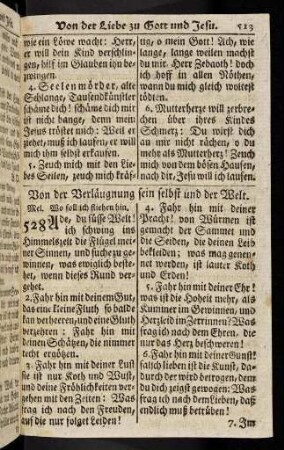 Von der Liebe zu Gott und Jesu. 513
wie ein Löwe wacht: Herr,
er will dein Kind verschlin-
gen, hilf im Glauben ihn be-
zwingen.
4. Seelenmörder, alte
Schlange, Tausendkünstler
schäme dich! schäme dich mir
ist nicht bange, denn mein
Jesus tröstet mich: Weil er
ziehet, muß ich laufen, er will
mich ihm selbst erkaufen.
5. Zeuch mich mit den Lie-
bes Seilen, zeuch mich kräf-
tig, o mein Gott! Ach, wie
lange, lange weilen machst
du mir, Herr Zebaoth! doch
ich hoff in allen Nöthen,
wann du mich gleich woltest
tödten.
6. Mutterherze will zerbre-
chen über ihres Kindes
Schmerz: Du wirst dich
an mir nicht rächen, o du
mehr als Mutterherz! Zeuch
mich von dem bösen Haufen,
nach dir, Jesu, laß mich laufen.
Von der Verläugnung sein selbst und der Welt.
Mel. Wo soll ich fliehen hin,
528 Ade, du süsse Welt!
ich schwing ins
Himmelszelt die Flügel mei-
ner Sinnen, und suche zu ge-
winnen, was ewiglich beste-
het, wenn dieses Rund ver-
gehet.
2. Fahr hin mit deinem Gut,
das eine kleine Fluth so balde
kan verheeren, und eine Gluth
verzehren: Fahr hin mit
deinen Schätzen, die nimmer
recht ergötzen.
3. Fahr hin mit deiner Lust
sie ist nur Koth und Wust,
und deine Fröhlichkeiten ver-
gehen mit den Zeiten: Was
frag ich nach den Freuden,
auf die nur folget Leiden!
4. Fahr hin mit deiner
Pracht! von Würmen ist
gemacht der Sammet und
die Seiden, die deinen Leib
bekleiden; was mag genen-
net werden, ist lauter Koth
und Erden!
5. Fahr hin mit deiner Ehr!
was ist die Hoheit mehr, als
Kummer im Gewinnen, und
Herzleid im Zerrinnen? Was
frag ich nach den Ehren, die
nur das Herz beschweren!
6. Fahr hin mit deiner Gunst!
falsch lieben ist die Kunst, da-
durch der wird betrogen, dem
du dich zeigst gewogen: Was
frag ich nach dem Lieben, daß
endlich muß betrüben!
7. Im